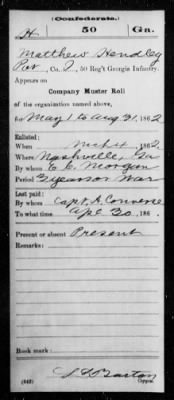 (Confederate.)
H 50 Ga.
Matthew Hendley
Pvt, Co. I, 50 Reg't Georgia Infantry.
Appears on
Company Muster Roll
of the organization named above,
for May 1 to Aug 31, 1862
Enlisted:
When Mch 4, 1862
Where Nashville, Ga
By whom E. C. Morgan
Period 3 years or War
Last paid:
By whom Capt. A. Converse
To what time Apl 30, 186 .
Present or absent Present
Remarks:
Book mark:
(642)
Copyist.